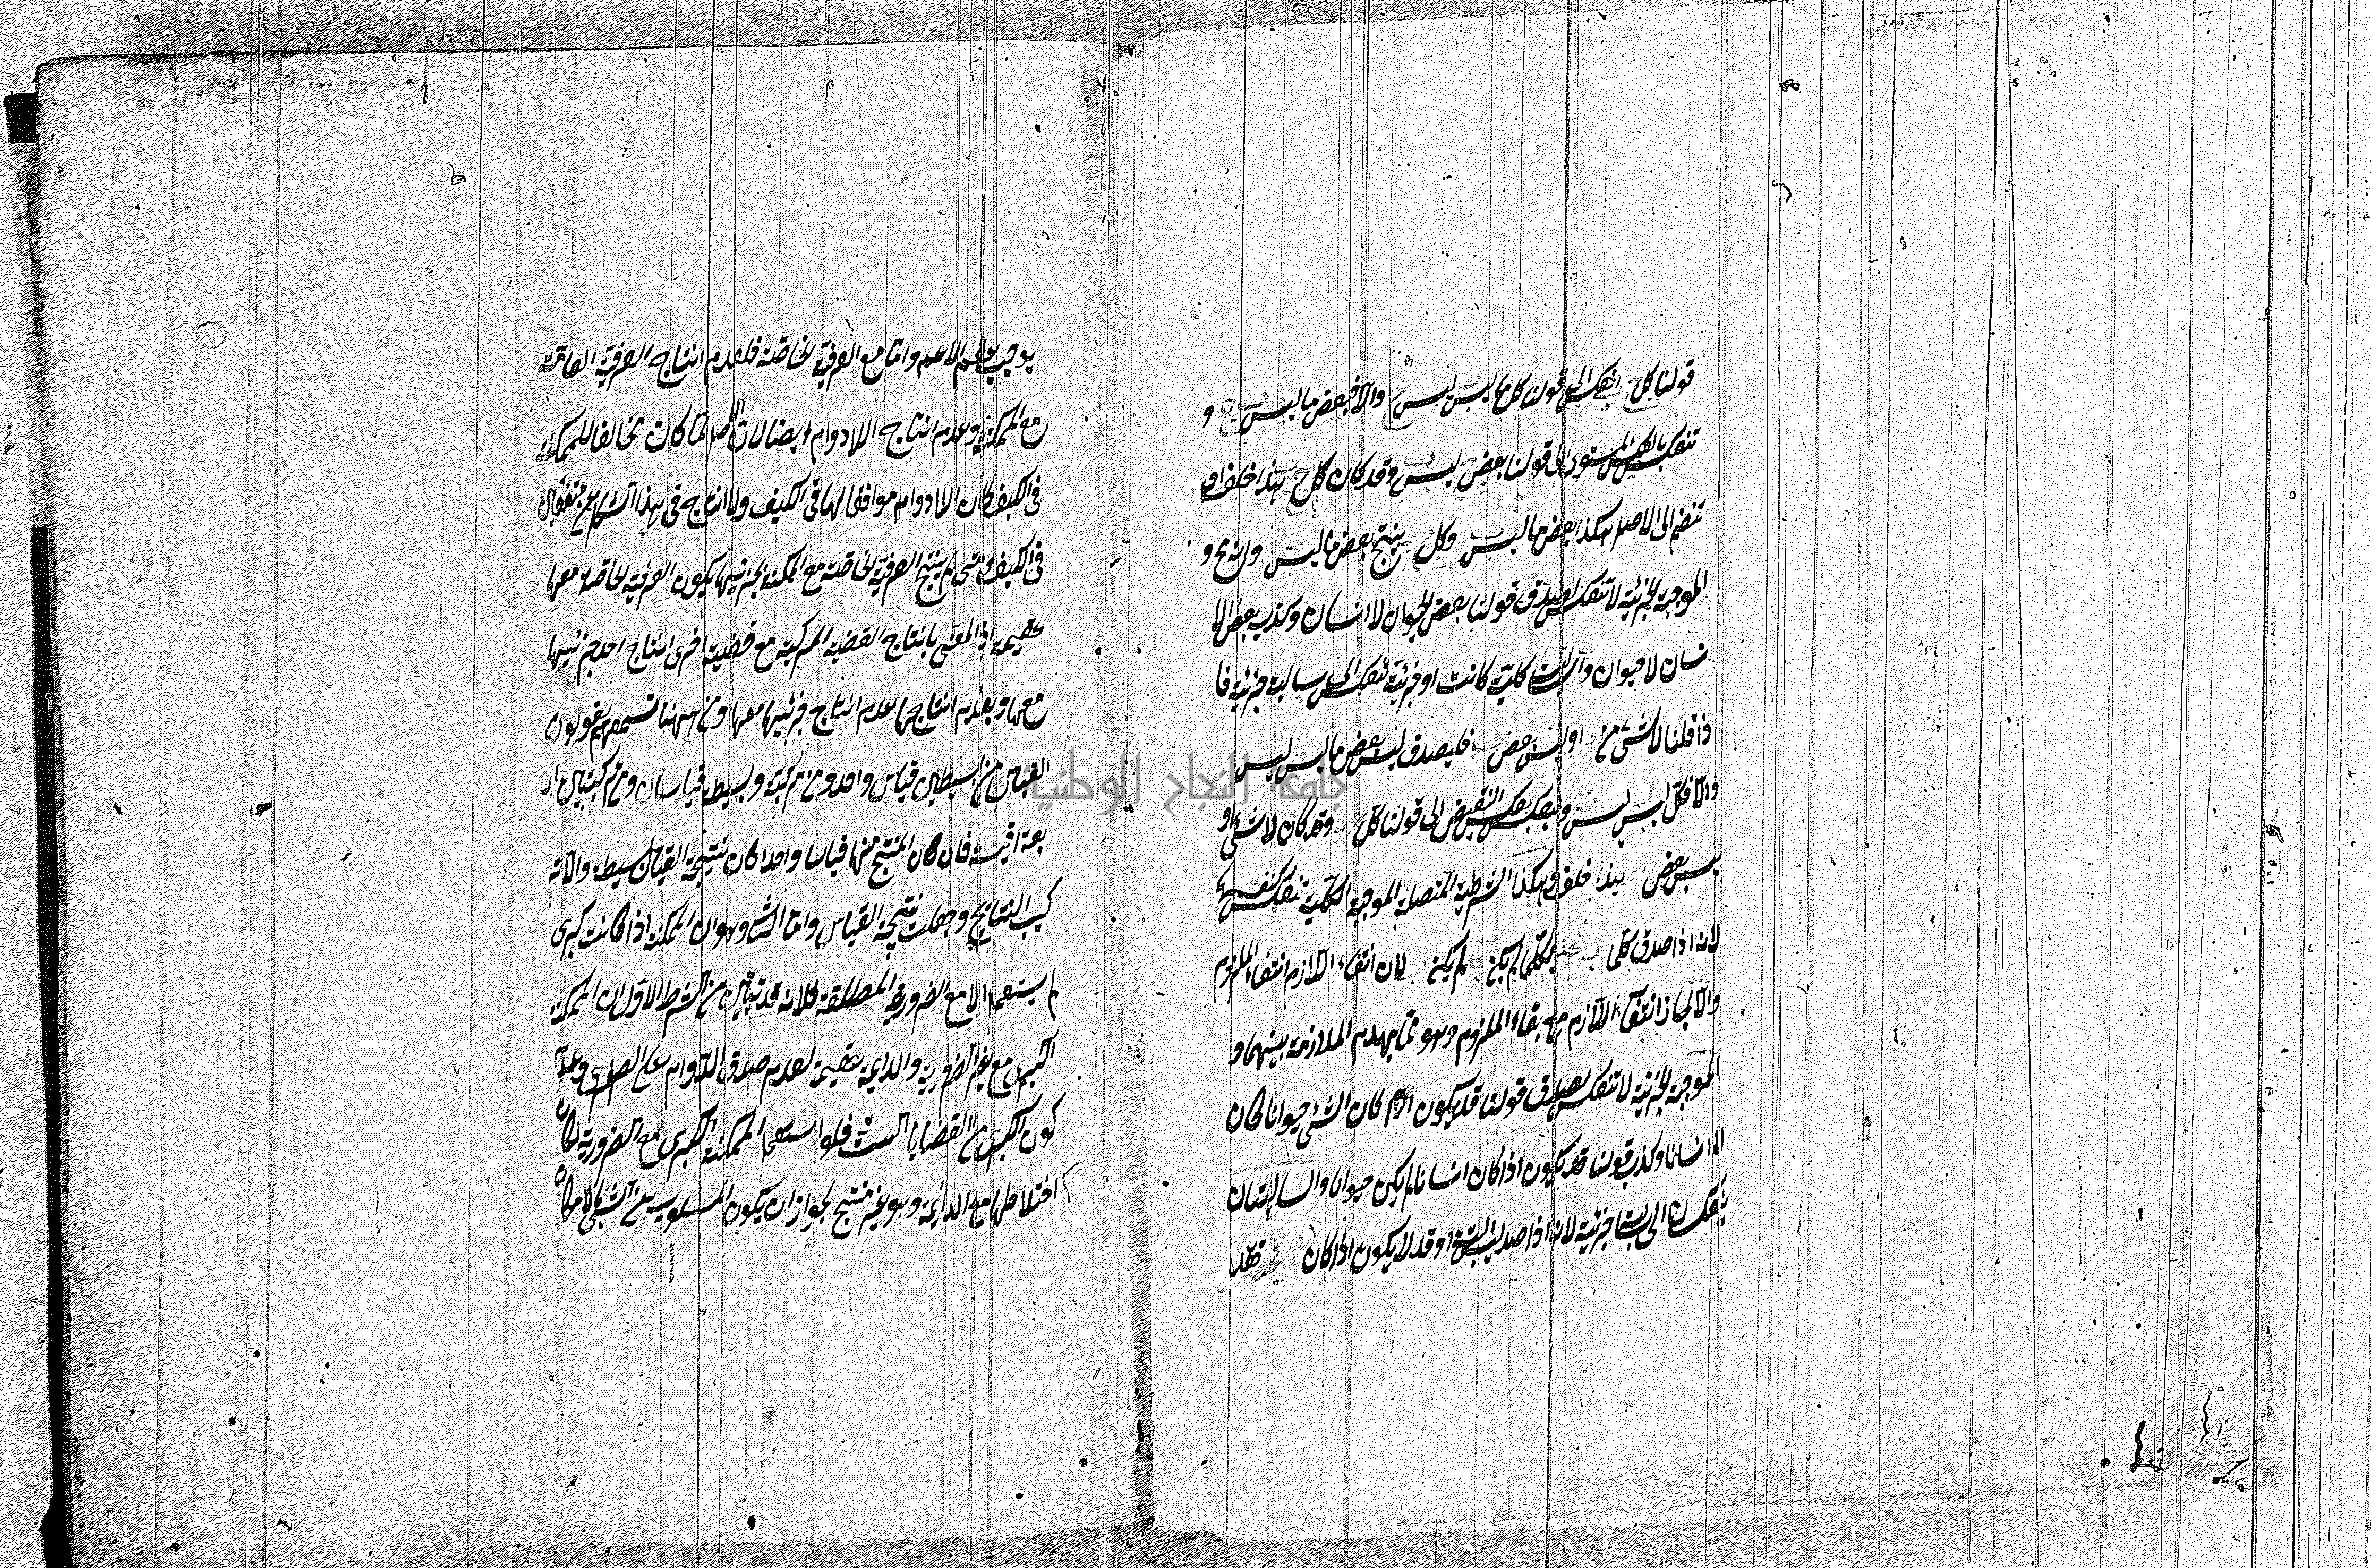 قولنا كل ج ب ينعكس الى قولنا كل ما ليس ب ليس ج والا فبعض ما ليس ب ج و
تنعكس بالعكس المستوى الى قولنا بعض ج ليس ب وقد كان كل ج ب هذا خلف او
تنضم الى الاصل هكذا بعض ما ليس ب ج وكل ج ب ينتج بعض ما ليس ب ب وانه مح و
الموجبة الجزئية لا تنعكس لصدق قولنا بعض الحيوان لا انسان وكذب بعض الا
نسان لا حيوان والسالبة كلية كانت او جزئية تنعكس الى سالبة جزئية فا
ذا قلنا لا شئ من او ليس بعض فليصدق ليس بعض ما ليس ليس
والا فكل ليس ليس وينعكس بعكس النقيض الى قولنا كل وقد كان لا شئ او
ليس بعض هذا خلف وهكذا الشرطية المتصلة الموجبة الكلية تنعكس كنفسها
لانه اذا صدق كلما فكلما لم يكن لم يكن لان انتفاء اللازم انتفاء الملزوم
والا لجاز انتفاء اللازم مع بقاء الملزوم وهو مما يهدم الملازمة بينهما و
الموجبة الجزئية لا تنعكس لصدق قولنا قد يكون اذا كان الشئ حيوانا كان
لا انسانا وكذب قولنا قد يكون اذا كان انسانا لم يكن حيوانا والسالبتان
ينعكسان الى سالبة جزئية لانه اذا صدق ليس البتة او قد لا يكون اذا كان فقد
يوجب عقم الاعم واما مع العرفية الخاصة فلعدم انتاج العرفية العامة
مع الممكنة وعدم انتاج اللادوام ايضا لان الاصل لما كان مخالفا للممكنة
فى الكيف كان اللادوام موافقا لها فى الكيف ولا انتاج فى هذا الشكل عن متفقتين
فى الكيف ومتى لم ينتج العرفية الخاصة مع الممكنة بجزئيها يكون العرفية الخاصة معها
عقيمة اذ المعنى بانتاج القضية المركبة مع قضية اخرى انتاج احد جزئيها
معها وبعدم انتاجها عدم انتاج جزئيها معها ومن ههنا تسمعهم يقولون
القياس من بسيطين قياس واحد ومن مركبة وبسيطة قياسان ومن مركبتين ار
بعة اقيسة فان كان المنتج منها قياسا واحدا كان نتيجة القياس بسيطة والا تر
كيب النتائج وجعلت نتيجة القياس واما الشا وهو ان الممكنة اذا كانت كبرى
لم يستعمل الا مع الضرورية المطلقة فلانه قد تبين من الشرط الاول ان الممكنة
الكبرى مع غير الضرورية والدايمة عقيمة لعدم صدق الدوام على الصغرى وعدم
كون الكبرى من القضايا الست فلو استعمل الممكنة الكبرى مع الضرورية لكان
اختلاطها مع الدائمة وهو غير منتج لجواز ان يكون المسلوب عن الشئ بالامكان